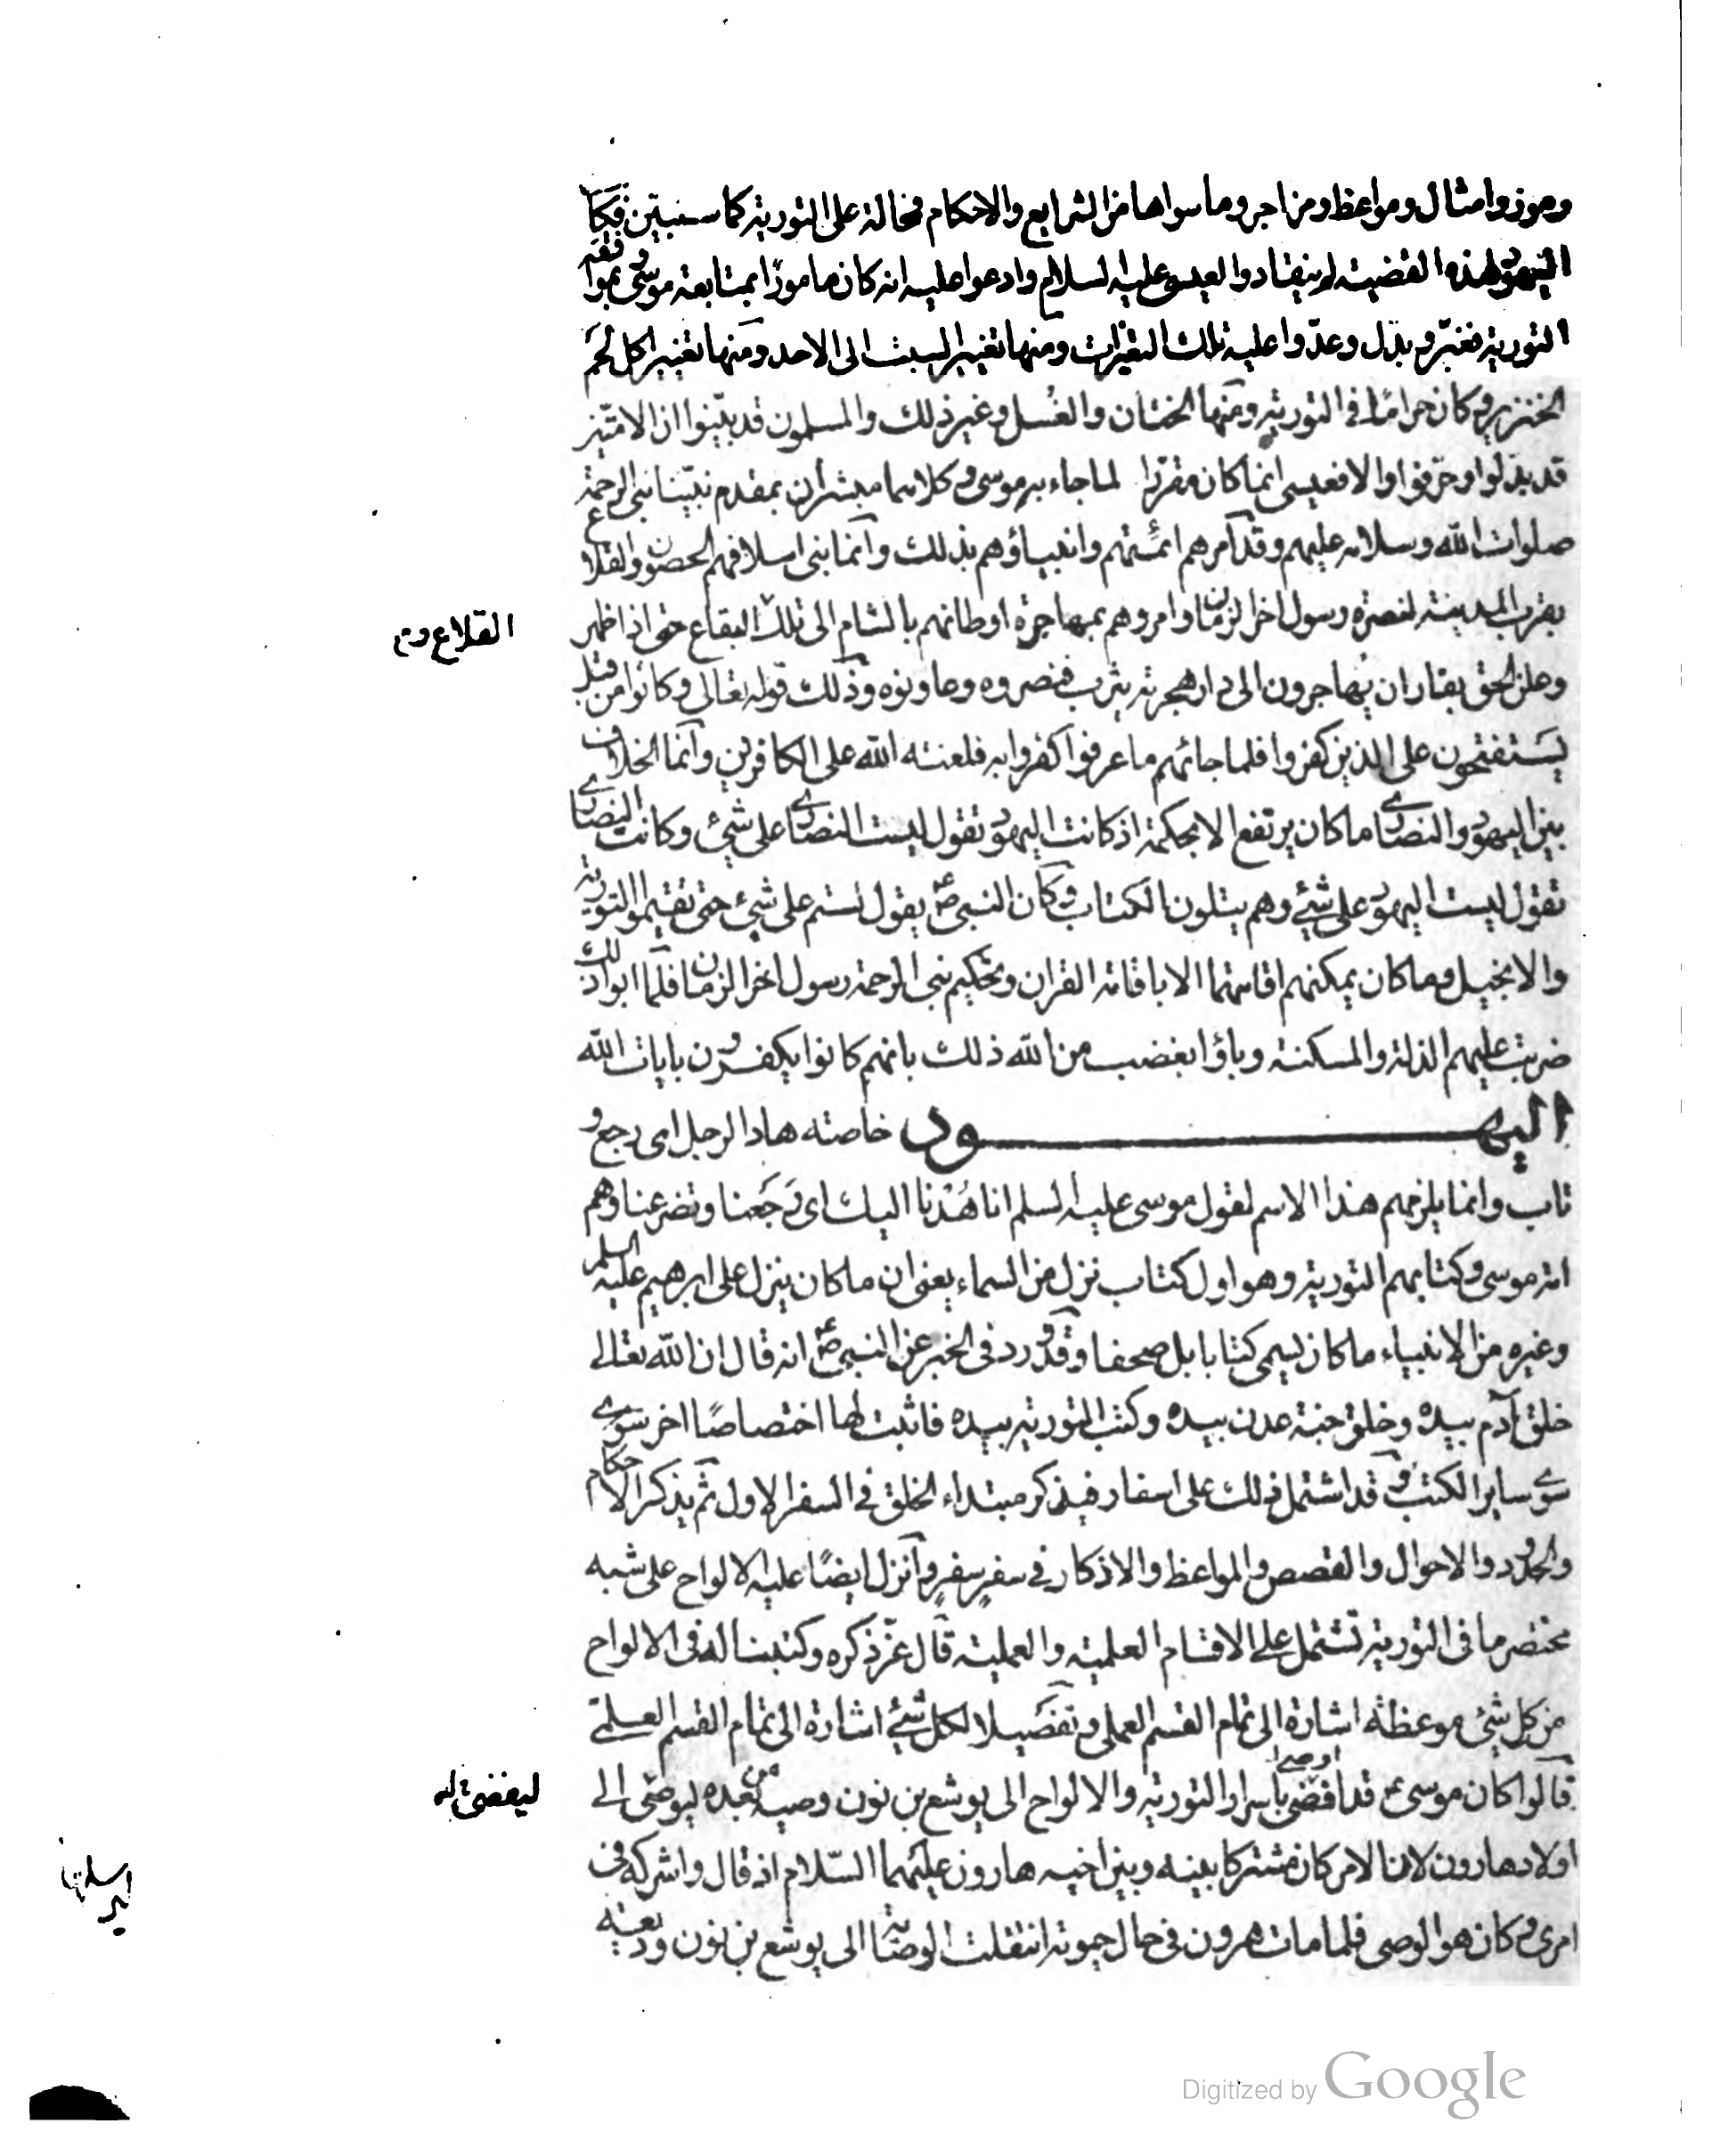 ورموز وامثال ومواعظ ومزاجر وما سواها من الشرايع والاحكام فحالة على التورية كما سنبين فكا
اليهود لهذه القضية لم ينقادوا لعيسى عليه السلام وادعوا عليه انه كان مامورًا بمتابعة موسى بموافقة
التورية فغيّر وبدّل وعدّوا عليه تلك التغيرات ومنها تغيير السبت الى الاحد ومنها تغيير اكل لحم
الخنزير وكان حرامًا فى التورية ومنها الختان والغُسل وغير ذلك والمسلمون قد بيّنوا ان الامتين
قد بدّلوا وحرّفوا والا فعيسى انما كان مقررًا لما جاء به موسى وكلاهما مبشران بمقدم نبيّنا نبى الرحمة
صلوات الله وسلامه عليهم وقد امرهم ائمتهم وانبياؤهم بذلك وانما بنى اسلافهم الحصون والقلاع
بقرب المدينة لنصرة رسول اخر الزمان وامروهم بمهاجرة اوطانهم بالشام الى تلك البقاع حتى اذا ظهر
وعلن الحق بفاران يُهاجرون الى دار هجرته يثرب فنصروه وعاونوه وذلك قوله تعالى وكانوا من قبل
يستفتحون على الذين كفروا فلما جائهم ما عرفوا كفروا به فلعنة الله على الكافرين وانما الخلاف
بين اليهود والنصارى ما كان يرتفع الا بحكمة اذ كانت اليهود تقول ليست النصارى على شيئ وكانت النصارى
تقول ليست اليهود على شيئ وهم يتلون الكتاب وكان النبى صع يقول لستم على شيئ حتى تقيموا التورية
والانجيل وما كان يمكنهم اقامتهما الا باقامة القران وتحكيم نبى الرحمة رسول اخر الزمان فلما ابوا ذلك
ضربت عليهم الذلة والمسكنة وباؤا بغضب من الله ذلك بانهم كانوا يكفرون بايات الله
اليهود خاصته هاد الرجل اى رجع و
تاب وانما يلزمهم هذا الاسم لقول موسى عليه السلم انا هُدْنا اليك اى رَجَعنا وتضرعنا وهم
امة موسى وكتابهم التورية وهو اول كتاب نزل من السماء يعنى ان ما كان ينزل على ابرهيم عليه السلم
وغيره من الانبياء ما كان يسمى كتابا بل صحفا وقد ورد فى الخبر عن النبى صع انه قال ان الله تعالى
خلق آدم بيده وخلق جنة عدن بيده وكتب التورية بيده فاثبت لها اختصاصًا اخر سوى
سوى ساير الكتب وقد اشتمل ذلك على اسفار فيذكر مبتداء الخلق فى السفر الاول ثم يذكر الاحكام
والحدود والاحوال والقصص والمواعظ والاذكار فى سفرٍ سفرٍ وانزل ايضًا عليه الالواح على شبه
مختصر ما فى التورية تشتمل على الاقسام العلمية والعملية قال عزّ ذكره وكتبنا له فى الالواح
من كل شيئ موعظة اشارة الى تمام القسم العملى وتفصيلا لكل شيئ اشارة الى تمام القسم العلمى
قالوا كان موسى ع قد افضى اوصى باسرار التورية والالواح الى يوشع بن نون وصيه من بعده ليوصّى الى
اولاد هارون لان الامر كان مشتركا بينه وبين اخيه هارون عليهما السّلام اذ قال واشركه فى
امرى وكان هو الوصى فلما مات هرون فى حال حيوته انتقلت الوصية الى يوشع بن نون وديعته
القلاع وم
ليفضى له
Digitized by Google